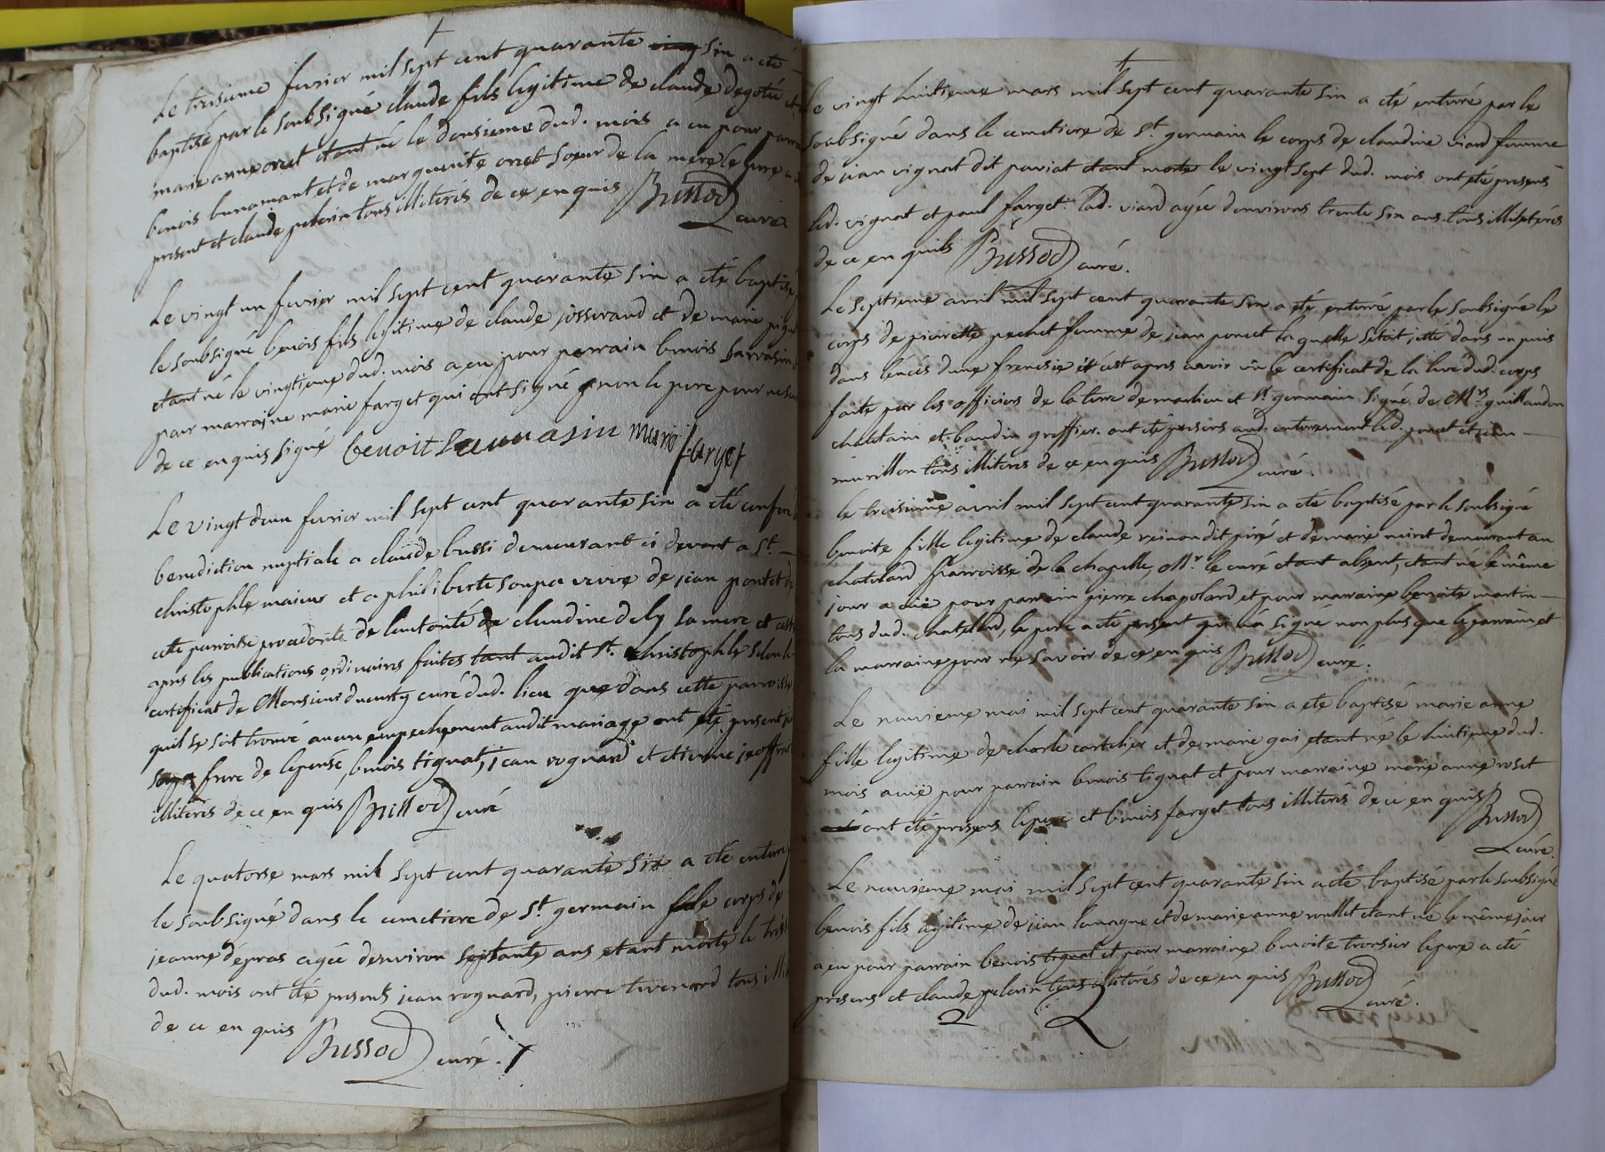 Le troisieme fevrier mil sept cent quarante sin a été
baptisé par le soubsigné claude fils legitime de claude degotii et
marie anne orset etant né le deusieme dud. mois a eu pour parra
benois bunamant et de marguerite orset soeur de la mere le pere a
present et claude pelerin tous illiterés de ce enquis Bussod curé
Le vingt un fevrier mil sept cent quarante sin a été baptisé
le soubsigné benois fils legitime de claude josserand et de marie
etant né le vingtieme dud. mois a eu pour parrain benois sarrasin
pour marraine marie farget qui ont signé non le pere pour ne
de ce enquis signé benoit marie farget
Le vingt deux fevrier mil sept cent quarante sin a été
benediction nuptiale a claude bussi demeurant ci devant a St.
christophle et a philiberte soupa veuve de jean pontet
cette parroisse de lautorité de claudine dely sa mere et
apres les publications ordinaires faites tant audit St. christophle selon le
certificat de Monsieur curé dud. lieu que dans cette parroisse
quil se soit trouvé aucun empechement audit mariage ont été present
frere de lepouse, benois tignat, jean roguard et etienne
illiterés de ce enquis Bussod curé
Le quatorse mars mil sept cent quarante six a été enterré
le soubsigné dans le cemetiere de St. germain le corps de
jeanne depras agée denviron septante ans etant morte le
dud. mois ont été presents jean roguard, pierre tous
de ce en quis Bussod curé.
Le vingt huitieme mars mil sept cent quarante sin a été enterré par le
soubsigné dans le cemetiere de St. germain le corps de claudine viard femme
de jean vignat dit pariat etant morte le vingt sept dud. mois ont été presens
led. vignat et paul farget. Lad. viard agée denvirons trente sin ans. tous illiterés
de ce en quils Bussod curé.
Le septieme avril mil sept cent quarante sin a été enterré par le soubsigné le
corps de pierrette pechet femme de jean poncet la quelle setoit jetté dans un puis
dans lencés dune frenesie et cest apres avoir vû le certificat de la livré dud. corps
faite par les officiers de la terre de et St germain signé de Mrs guillandon
chatelain et baudin greffier. ont été presens aud. enterrement led. poncet et jean
murillon tous illiteres de ce enquis Bussod curé.
le troisieme avril mil sept cent quarante sin a été baptisé par le soubsigné
benoite fille legitime de claude reimon dit piré et de marie demeurant au
chatelard parroisse de la chapelle, Mr. le curé etant absent, etant né le même
jour a eüe pour parrain pierre chapolard et pour marraine benoite martin
tous dud. chatelard, le pere a été present qui n'a signé non plus que le parrain et
la marraine pour ne savoir de ce enquis Bussod curé.
Le neuvieme mai mil sept cent quarante sin a été baptisé marie anne
fille legitime de charle cortelier et de marie gai etant né le huitieme dud.
mois a eüe pour parrain benois tignat et pour marraine marie anne roset
ont été presens lepere et benois farget tous illiterés de ce en quis Bussod
curé.
Le neuvieme mai mil sept cent quarante sin a été baptisé par le soubsigné
benois fils legitime de jean et de marie anne etant né le même jour
a eu pour parrain benois tignat et pour marraine benoite lepere a été
presens et claude pelerin tous illiterés de ce en quis Bussod
curé.